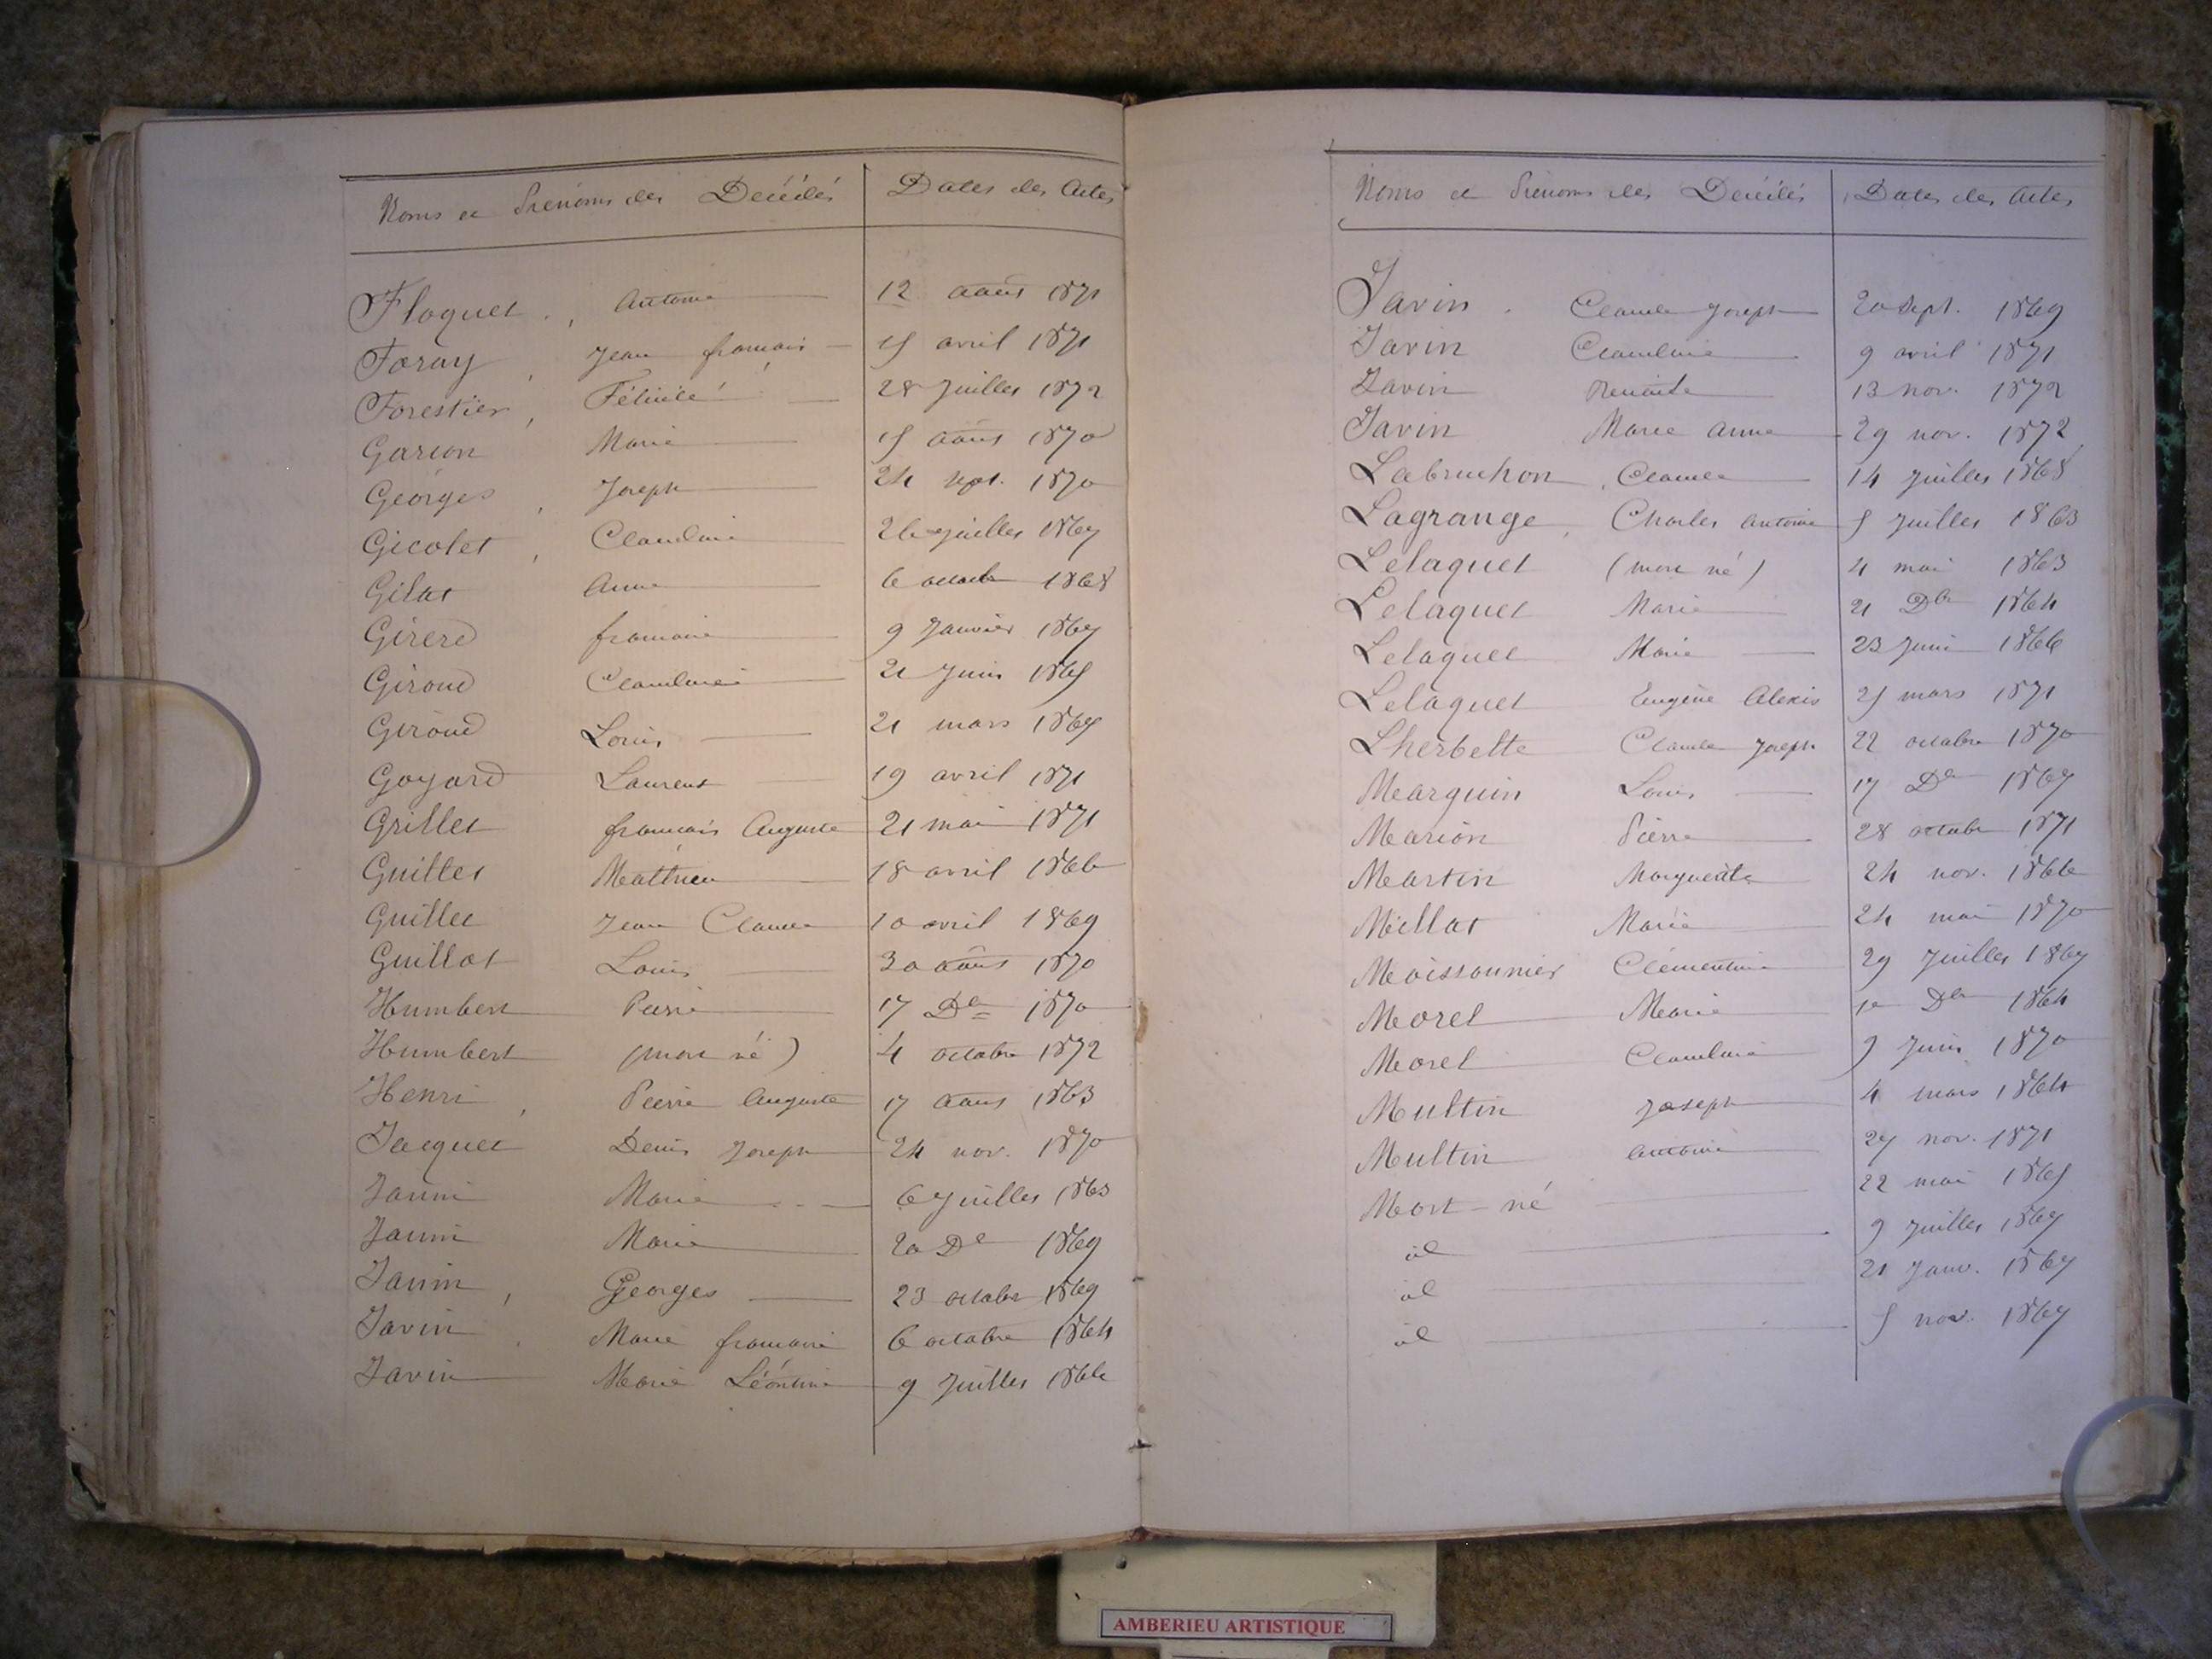 Noms et Prénoms des Décédés Dates des Actes
Floquet, Antoine 12 août 1871
Foray, Jean français 15 avril 1871
Forestier, Félicité 28 Juillet 1872
Garcon Marie 15 août 1870
Georges, Joseph 24 sept. 1870
Gicolet, Claudine 26 juillet 1867
Gilat Anne 6 octobre 1868
Girerd françoise 9 Janvier 1867
Giroud Claudine 21 Juin 1865
Giroud Louis 21 mars 1867
Goyard Laurent 19 avril 1871
Grillet français Auguste 21 mai 1871
Guillet Matthieu 18 avril 1866
Guillet Jean Claude 10 avril 1869
Guillot Louis 30 août 1870
Humbert Pierre 17 De 1870
Humbert (mort né) 4 octobre 1872
Henri, Pierre Auguste 17 août 1863
Jacquet Denis Joseph 24 nov. 1870
Janin Marie 6 Juillet 1863
Janin Marie 20 De 1869
Janin, Georges 23 octobre 1869
Javin Marie françoise 6 octobre 1864
Javin Marie Léontine 9 Juillet 1866
Noms et Prénoms des Décédés Dates des Actes
Javin Claude Joseph 20 sept. 1869
Javin Claudine 9 avril 1871
Javin Benoite 13 nov. 1872
Javin Marie Anne 29 nov. 1872
Labruchon, Claude 14 juillet 1868
Lagrange, Charles Antoine 5 Juillet 1863
Lelaquet (mort né) 4 mai 1863
Lelaquet Marie 21 Dbe 1864
Lelaquet Marie 23 Juin 1866
Lelaquet Eugène Alexis 25 mars 1871
Lherbette Claude Joseph 22 octobre 1870
Marguin Louis 17 De 1867
Marion Pierre 28 octobre 1871
Martin Marguerite 24 nov. 1866
Millat Marie 24 mai 1870
Moissonnier Clémentine 29 Juillet 1867
Morel Marie 10 Dbe 1864
Morel Claudine 9 Juin 1870
Multin Joseph 4 mars 1864
Multin Antoine 27 nov. 1871
Mort-né 22 mai 1865
id 9 Juillet 1867
id 21 Janv. 1867
id 5 nov. 1867
AMBERIEU ARTISTIQUE